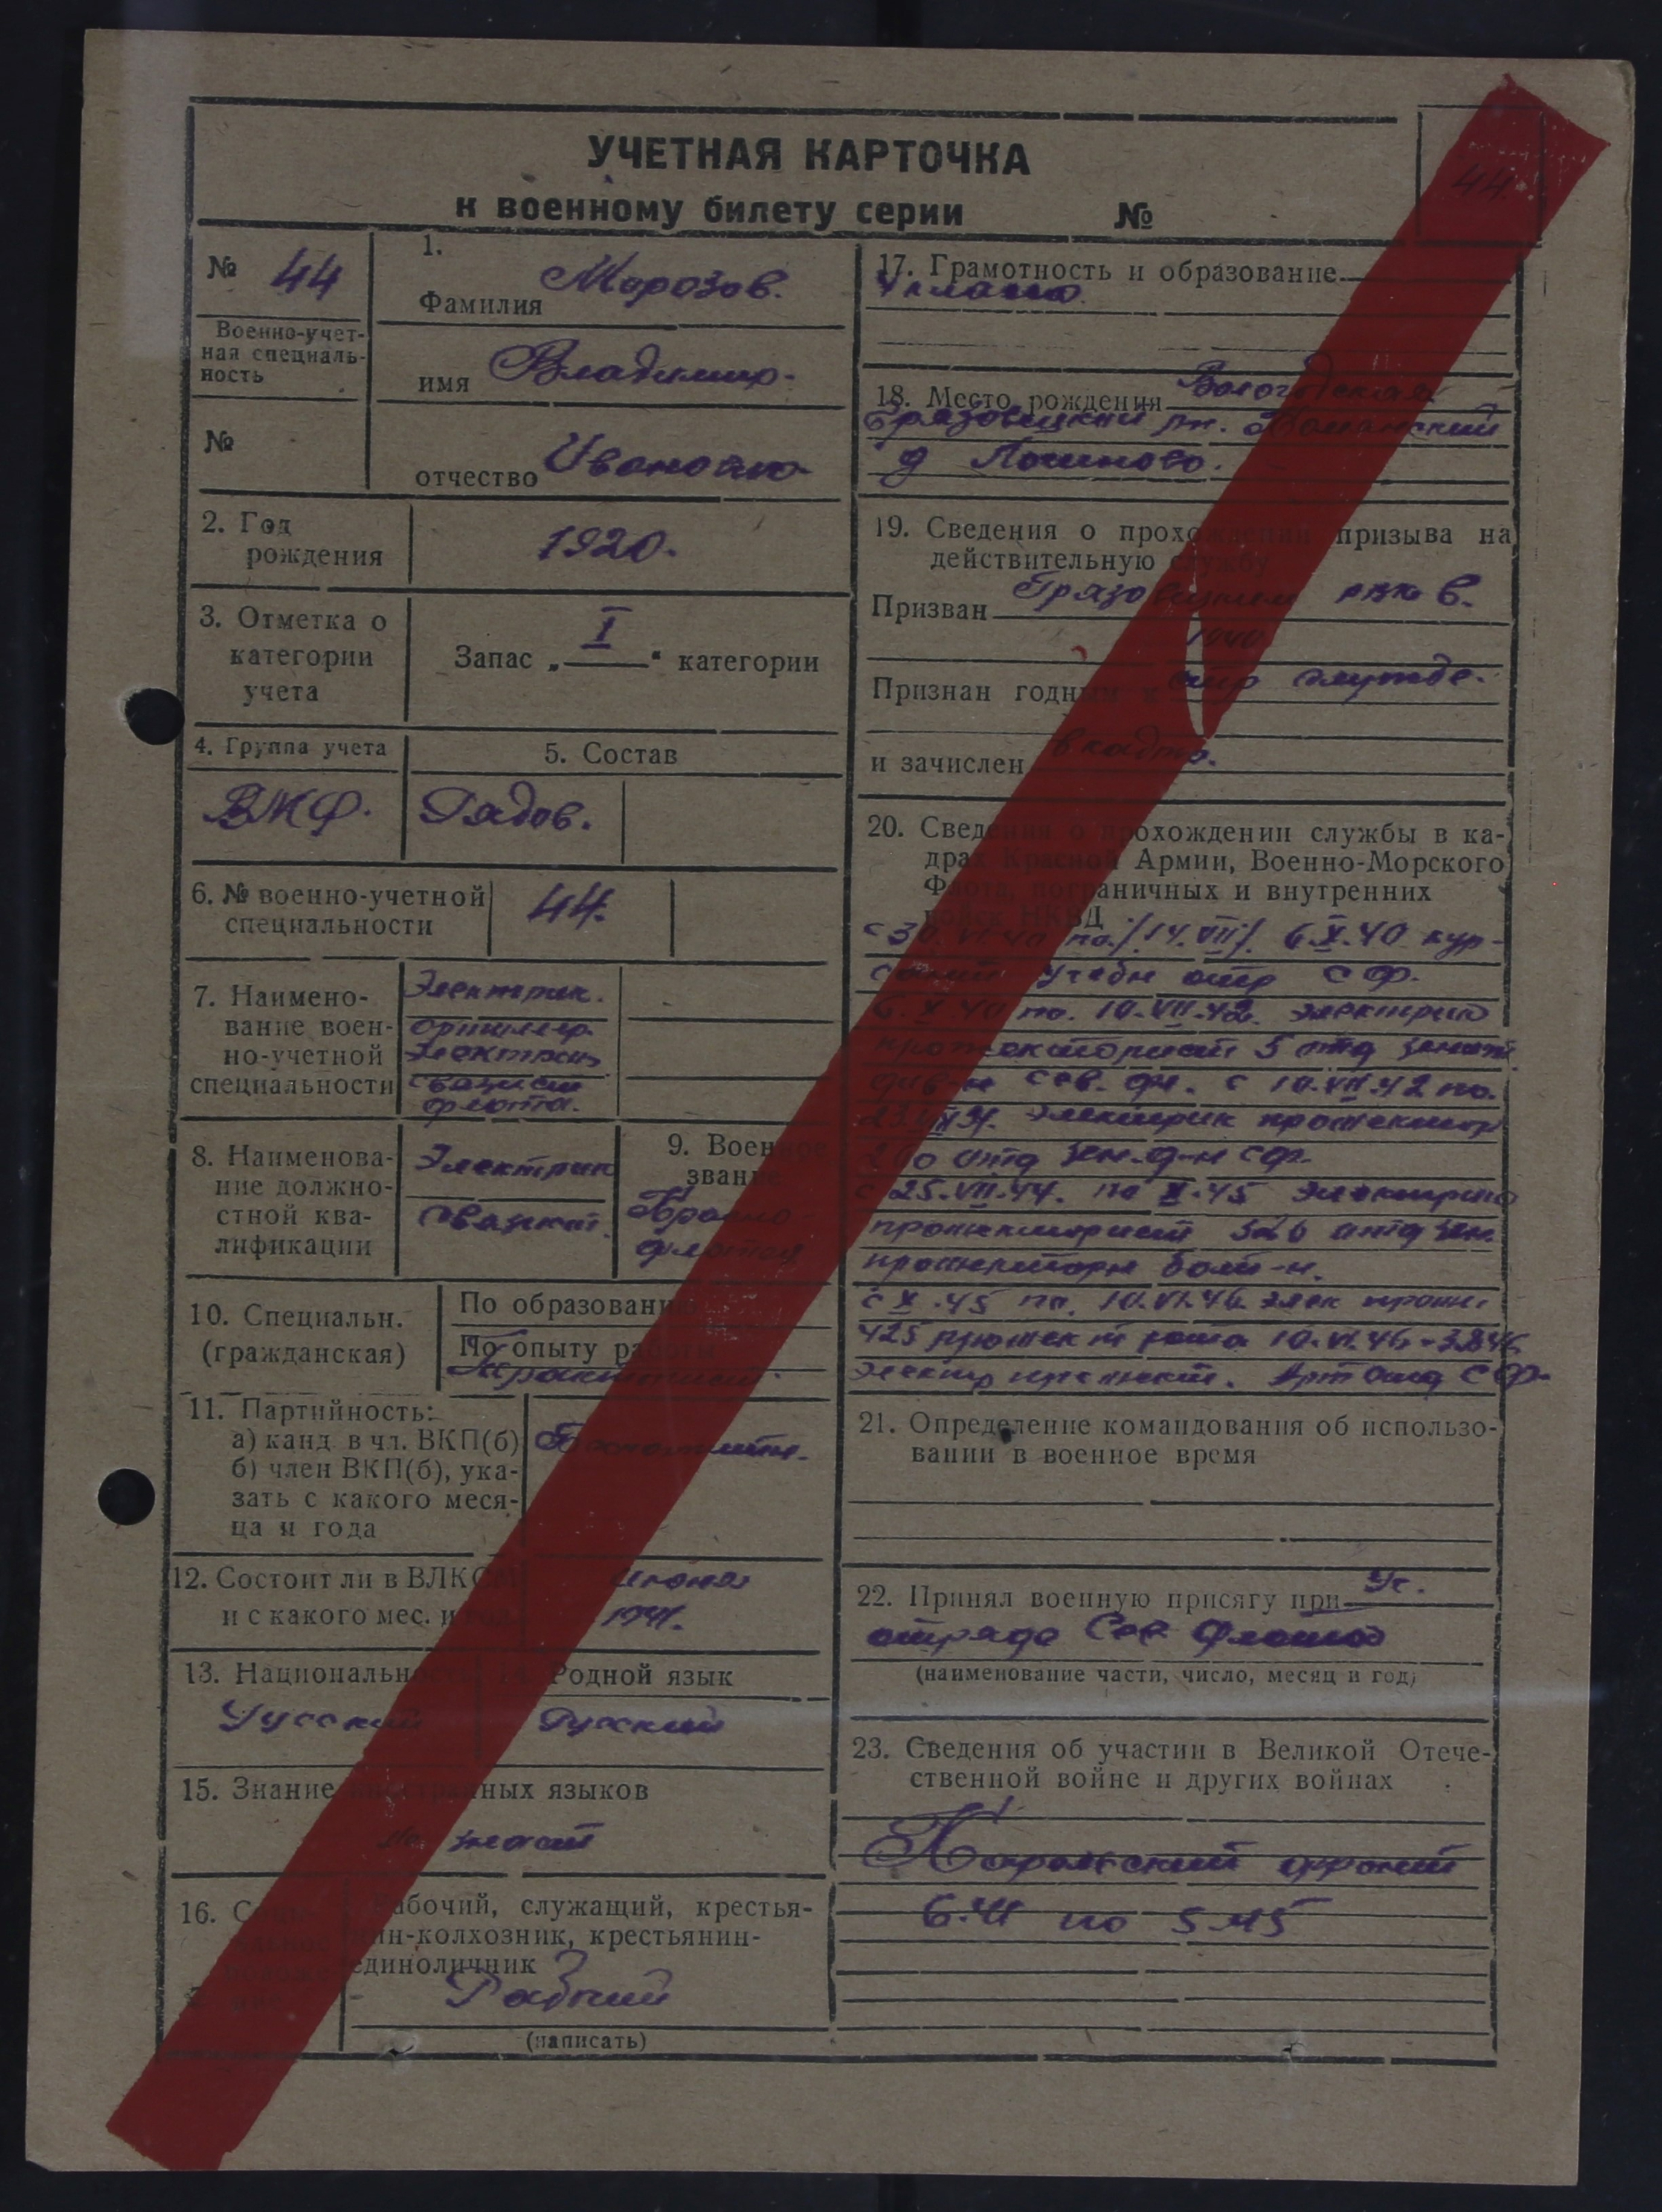 УЧЕТНАЯ КАРТОЧКА
к военному билету серии №
44
№ 44
Военно-учет-
ная специаль-
ность
№
1.
Фамилия Морозов.
имя Владимир.
отчество
2. Год
рождения
1920.
3. Отметка о
категории
учета
Запас „ I " категории
4. Группа учета
ВМФ.
5. Состав
Рядов.
6. № военно-учетной
специальности
44.
7. Наимено-
вание воен-
но-учетной
специальности
Электрик.
флота.
8. Наименова-
ние должно-
стной ква-
лификации
Электрик
связист.
9. Военное
звание
10. Специальн.
(гражданская)
По образованию
По опыту работы
11. Партийность:
а) канд. в чл. ВКП(б)
б) член ВКП(б), ука-
зать с какого меся-
ца и года
12. Состоит ли в ВЛКСМ
и с какого мес. и
1941.
13. Национальность
14. Родной язык
Русский
15. Знание иностранных языков
не знает
16.
Рабочий, служащий, крестья-
нин-колхозник, крестьянин-
единоличник
Рабочий
(написать)
17. Грамотность и образование
4 класса.
18. Место рождения Вологодская
Грязовецкий рн.
д
19. Сведения о прохождении призыва на
действительную службу
Призван Грязовецким рвк в.
1940
Признан годным к стр службе.
и зачислен
20. Сведения о прохождении службы в ка-
драх Красной Армии, Военно-Морского
Флота, пограничных и внутренних
войск НКВД
с 30. VI 40 по /14. VII/. 6.X.40 кур-
учебн отр СФ.
6. X 40 по. 10.VII.42. электрик
прожекторист 5 отд зенит
див-н Сев. фл. с 10.VII.42 по.
электрик прожектор
отд зен. д-н СФ.
с 25.VII.44. по X.45 электрик
прожекторист отд зен.
прожекторн бат-н.
с X.45 по. 10.VI.46. элек прож.
425 прожект рота 10.VI.46
электр прожект. Арт СФ.
21. Определение командования об использо-
вании в военное время
22. Принял военную присягу при Уч.
отряде Сев Флота
(наименование части, число, месяц и год)
23. Сведения об участии в Великой Отече-
ственной войне и других войнах
Карельский фронт
6.41 по 5.45